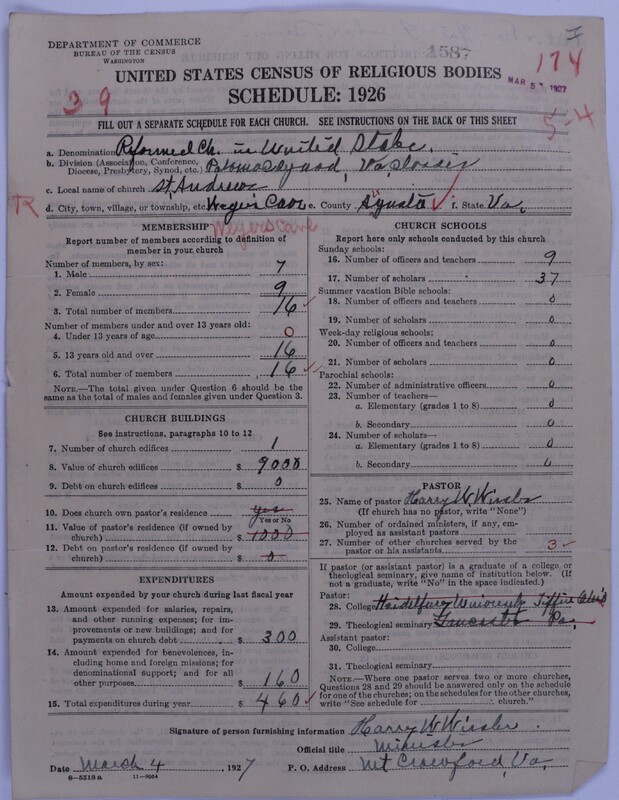 DEPARTMENT OF COMMERCE
BUREAU OF THE CENSUS
WASHINGTON
1587
174
MAR 5 1927
UNITED STATES CENSUS OF RELIGIOUS BODIES
SCHEDULE: 1926
39
5-4
FILL OUT A SEPARATE SCHEDULE FOR EACH CHURCH. SEE INSTRUCTIONS ON THE BACK OF THIS SHEET
a. Denomination Reformed Ch. in United State.
b. Division (Association, Conference, Diocese, Presbytery, Synod, etc.) Potomac Synod, Va.
c. Local name of church St Andrews
d. City, town, village, or township, etc. Weyers Cave e. County Agusta f. State Va.
Weyers Cave
MEMBERSHIP
Report number of members according to definition of member in your church
Number of members, by sex:
1. Male 7
2. Female 9
3. Total number of members 16
Number of members under and over 13 years old:
4. Under 13 years of age 0
5. 13 years old and over 16
6. Total number of members 16
NOTE.—The total given under Question 6 should be the same as the total of males and females given under Question 3.
CHURCH BUILDINGS
See instructions, paragraphs 10 to 12
7. Number of church edifices 1
8. Value of church edifices $ 9000
9. Debt on church edifices $ 0
10. Does church own pastor's residence yes
Yes or No
11. Value of pastor's residence (if owned by church) $ 1000
12. Debt on pastor's residence (if owned by church) $ 0
EXPENDITURES
Amount expended by your church during last fiscal year
13. Amount expended for salaries, repairs, and other running expenses; for improvements or new buildings; and for payments on church debt $ 300
14. Amount expended for benevolences, including home and foreign missions; for denominational support; and for all other purposes $ 160
15. Total expenditures during year $ 460
CHURCH SCHOOLS
Report here only schools conducted by this church
Sunday schools:
16. Number of officers and teachers 9
17. Number of scholars 37
Summer vacation Bible schools:
18. Number of officers and teachers 0
19. Number of scholars 0
Week-day religious schools:
20. Number of officers and teachers 0
21. Number of scholars 0
Parochial schools:
22. Number of administrative officers 0
23. Number of teachers—
a. Elementary (grades 1 to 8) 0
b. Secondary 0
24. Number of scholars—
a. Elementary (grades 1 to 8) 0
b. Secondary 0
PASTOR
25. Name of pastor Harry W. Wissler
(If church has no pastor, write "None")
26. Number of ordained ministers, if any, employed as assistant pastors
27. Number of other churches served by the pastor or his assistants 3
If pastor (or assistant pastor) is a graduate of a college or theological seminary, give name of institution below. (If not a graduate, write "No" in the space indicated.)
Pastor:
28. College Heidelburg University Tiffin Ohio
29. Theological seminary Lancaster Pa.
Assistant pastor:
30. College
31. Theological seminary
NOTE.—Where one pastor serves two or more churches, Questions 28 and 29 should be answered only on the schedule for one of the churches; on the schedules for the other churches, write "See schedule for church."
Signature of person furnishing information Harry W. Wissler.
Official title Minister
Date March 4, 1927 P. O. Address Mt Crawford, Va.
8-5218a 11-9004